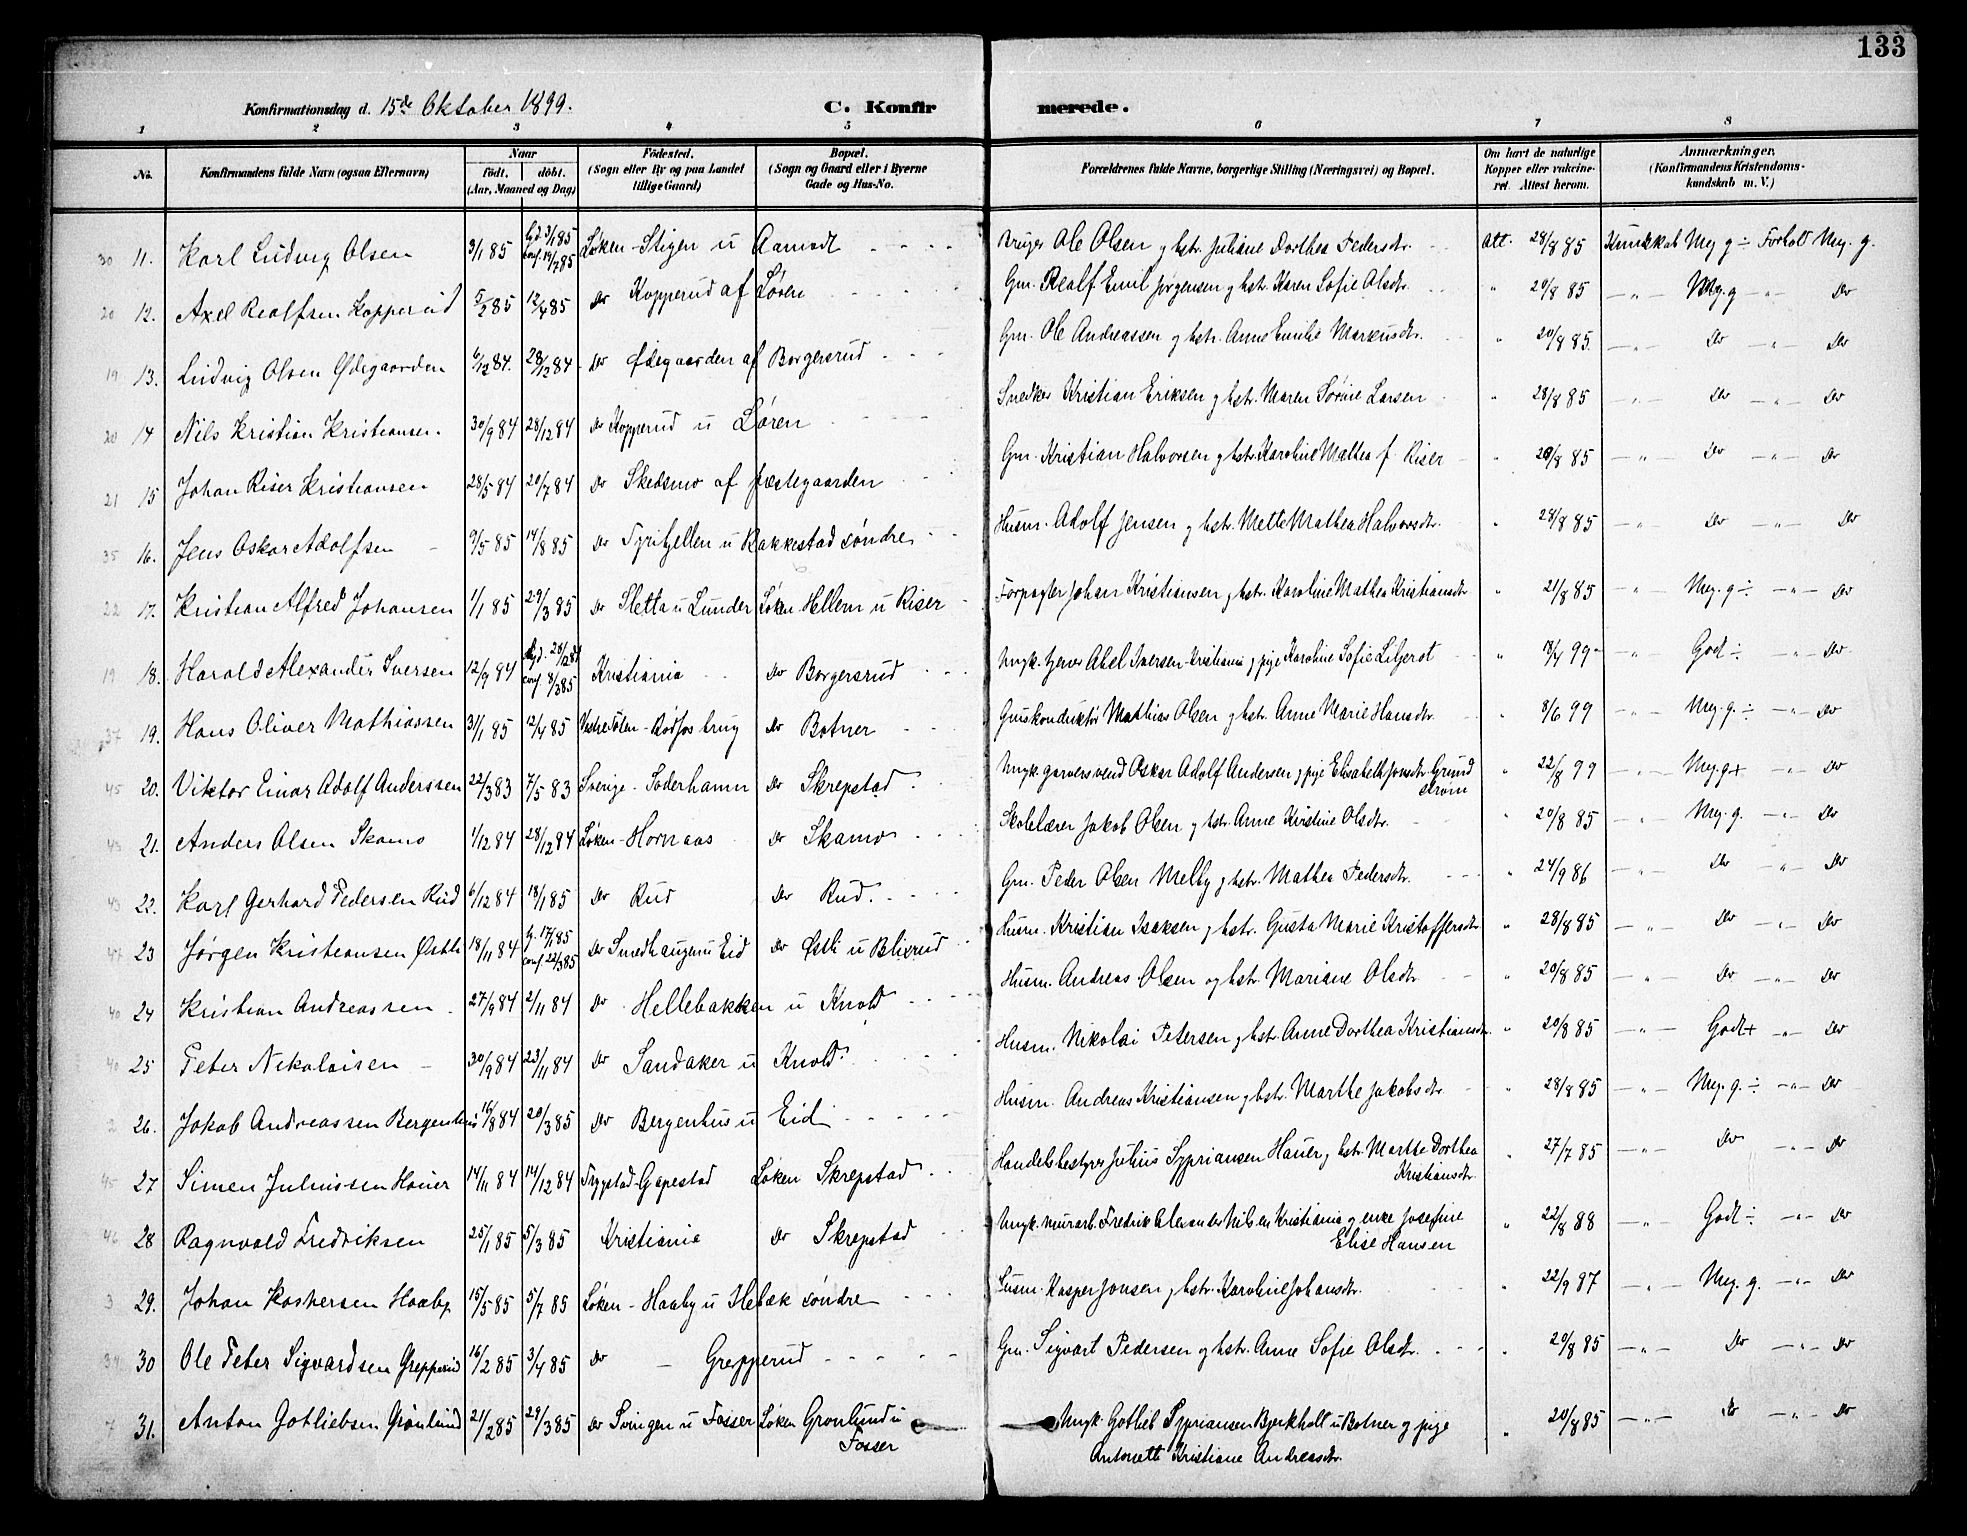 133
Konfirmationsdag d. 15de Oktober 1899.
C. Konfirmerede.
1 2 3 4 5 6 7 8
No.
Konfirmandens fulde Navn (ogsaa Efternavn)
Naar
født. døbt.
(Aar, Maaned og Dag)
Fødested.
(Sogn eller By og paa Landet tillige Gaard)
Bopæl.
(Sogn og Gaard eller i Byerne Gade og Hus-No.
Forældrenes fulde Navne, borgerlige Stilling (Næringsvei) og Bopæl.
Om havt de naturlige Kopper eller vakcineret. Attest herom.
Anmærkninger.
(Konfirmandens Kristendomskundskab m. V.)
30 11. Karl Ludvig Olsen 3/1 85 Gd 3/1 85 conf. 19/7 85 Løken - Stigen u Aamodt Bruger Ole Olsen g hstr. Juliane Dorthea Pedersdtr. Att. 28/8 85 Kundskab Meg g ÷ Forhold Meg. g.
20 12. Axel Realfsen Kopperud 5/2 85 12/4 85 Do Kopperud af Løren Gm. Realf Emil Jørgensen g hstr. Karen Sofie Olsdtr. " 20/8 85 — " — Meg. g — " — Do
19 13. Ludvig Olsen Ødegaarden 6/12 84. 28/12 84 Do Ødegaarden af Borgersrud Gm. Ole Andreassen g hstr. Anne Emilie Markusdtr. " 20/8 85. — " — Do — " — Do
20 14 Nils Kristian Kristiansen. 30/9 84 28/12 84 Do Kopperud u Løren Snedker Kristian Eriksen g hstr. Maren Sørine Larsen " 28/8 85 — " — Do — " — Do
21 15 Johan Riser Kristiansen 28/5 84 20/7 84 Do Skedsmo af Præstegaarden Gm. Kristian Halvorsen g hstr. Karoline Mathea f. Riser " 20/8 85 — " — Do — " — Do
35 16. Jens Oskar Adolfsen 9/5 85 14/8 85 Do Tyrifjellen u Rakkestad søndre Husm. Adolf Jensen g hstr. Mette Mathea Halvorsdtr. " 28/8 85 — " — Do — " — Do
22 17. Kristian Alfred Johansen 1/1 85 29/3 85 Do Sletta u Lunder Løken Hellern u Riser Forpagter Johan Kristiansen g hstr. Karoline Mathea Kristiansdtr " 21/8 85 — " — Meg. g ÷ — " — Do
19 18. Harald Alexander Iversen 12/9 84 28/12 84 conf 8/3 85 Kristiania Do Borgersrud Ungk. Abel Iversen Kristiania g pige Karoline Sofie " 18/4 99 — " — Godt ÷ — " — Do
37 19. Hans Oliver Mathiassen 31/1 85 12/4 85 Vestre Toten - Rødfos brug Do Botner Mathias Olsen g hstr. Anne Marie Hansdtr. " 8/6 99 — " — Meg. g. ÷ — " — Do
45 20. Viktor Einar Adolf Anderssen 22/3 83 7/5 83 Sverige - Söderhamn Do Skrepstad. Ungk garversvend Oskar Adolf Andersen g pige Elisabeth Jonsdtr. Grundstrøm " 22/8 99 — " — Meg. g + — " — Do
43 21. Anders Olsen Skamo 1/12 84 28/12 84 Løken - Hornaas Do Skamo Skolelærer Jakob Olsen g hstr. Anne Kristine Olsdtr. " 20/8 85 — " — Meg. g. — " — Do
43 22. Karl Gerhard Pedersen Rud 6/12 84 18/1 85 Do Rud Do Rud. Gm. Peder Olsen Melby g hstr. Mathea Pedersdtr. " 24/9 86 — " — Do " Do
47 23 Jørgen Kristiansen Østli 18/11 84 G. 17/1 85 conf 22/3 85 Do Smedhaugen u Eid Do Østli u Blixrud Husm. Kristian Isaksen g hstr. Gusta Marie Kristoffersdtr " 28/8 85 — " — Do — " — Do
40 24 Kristian Andreassen 27/9 84 2/11 84 Do Hellebakken u Knold Husm. Andreas Olsen og hstr. Mariane Olsdtr " 20/8 85 — " — Do — " — Do
40 25 Peter Nikolaisen 30/9 84 23/11 84 Do Sandaker u Knold Husm. Nikolai Petersen g hstr. Anne Dorthea Kristiansdtr. " 20/8 85 — " — Godt + " — Do
2 26. Jakob Andreassen Bergenhus 16/8 84 20/3 85 Do Bergenhus u Eid Husm. Andreas Kristiansen g hstr. Marthe Jakobsdtr " 28/8 85 — " — Meg. g. ÷ — " — Do
45 27 Simen Juliussen Hauer 14/11 84 14/12 84 Trygstad - Gopestad Løken Skrepstad Handelsbestyrer Julius Sypriansen Hauer g hstr. Marthe Dorthea Kristiansdtr. " 27/7 85 — " — Do — " — Do
46 28 Ragnvald Fredriksen 25/1 85 5/3 85 Kristiania Do Skrepstad Ungk. murarb. Fredrik Alexander Nilsen Kristiania g enke Josefine Elise Hansen " 22/8 88 — " — Godt ÷ — " — Do
3 29. Johan Kaspersen Haaby 15/5 85 5/7 85 Løken - Haaby u Hebæk søndre Husm. Kasper Jonsen g hstr. Karoline Johansdtr. " 22/9 97 — " — Meg. g. — " — Do
34 30 Ole Peter Sigvardsen Grepperud 16/2 85 3/4 85 Do — Grepperud Gm. Sigvart Pedersen og hstr. Anne Sofie Olsdtr. " 20/8 85 — " — Do — " — Do
7 31. Anton Gotliebsen Grønlund 21/2 85 29/3 85 Do Svingen u Fosser Løken Grønlund u Fosser Ungk. Gotlieb Sypriansen Bjerkholt u Botner g pige Antonette Kristiane Andreasdtr. " 20/8 85 — " — Do — " — Do